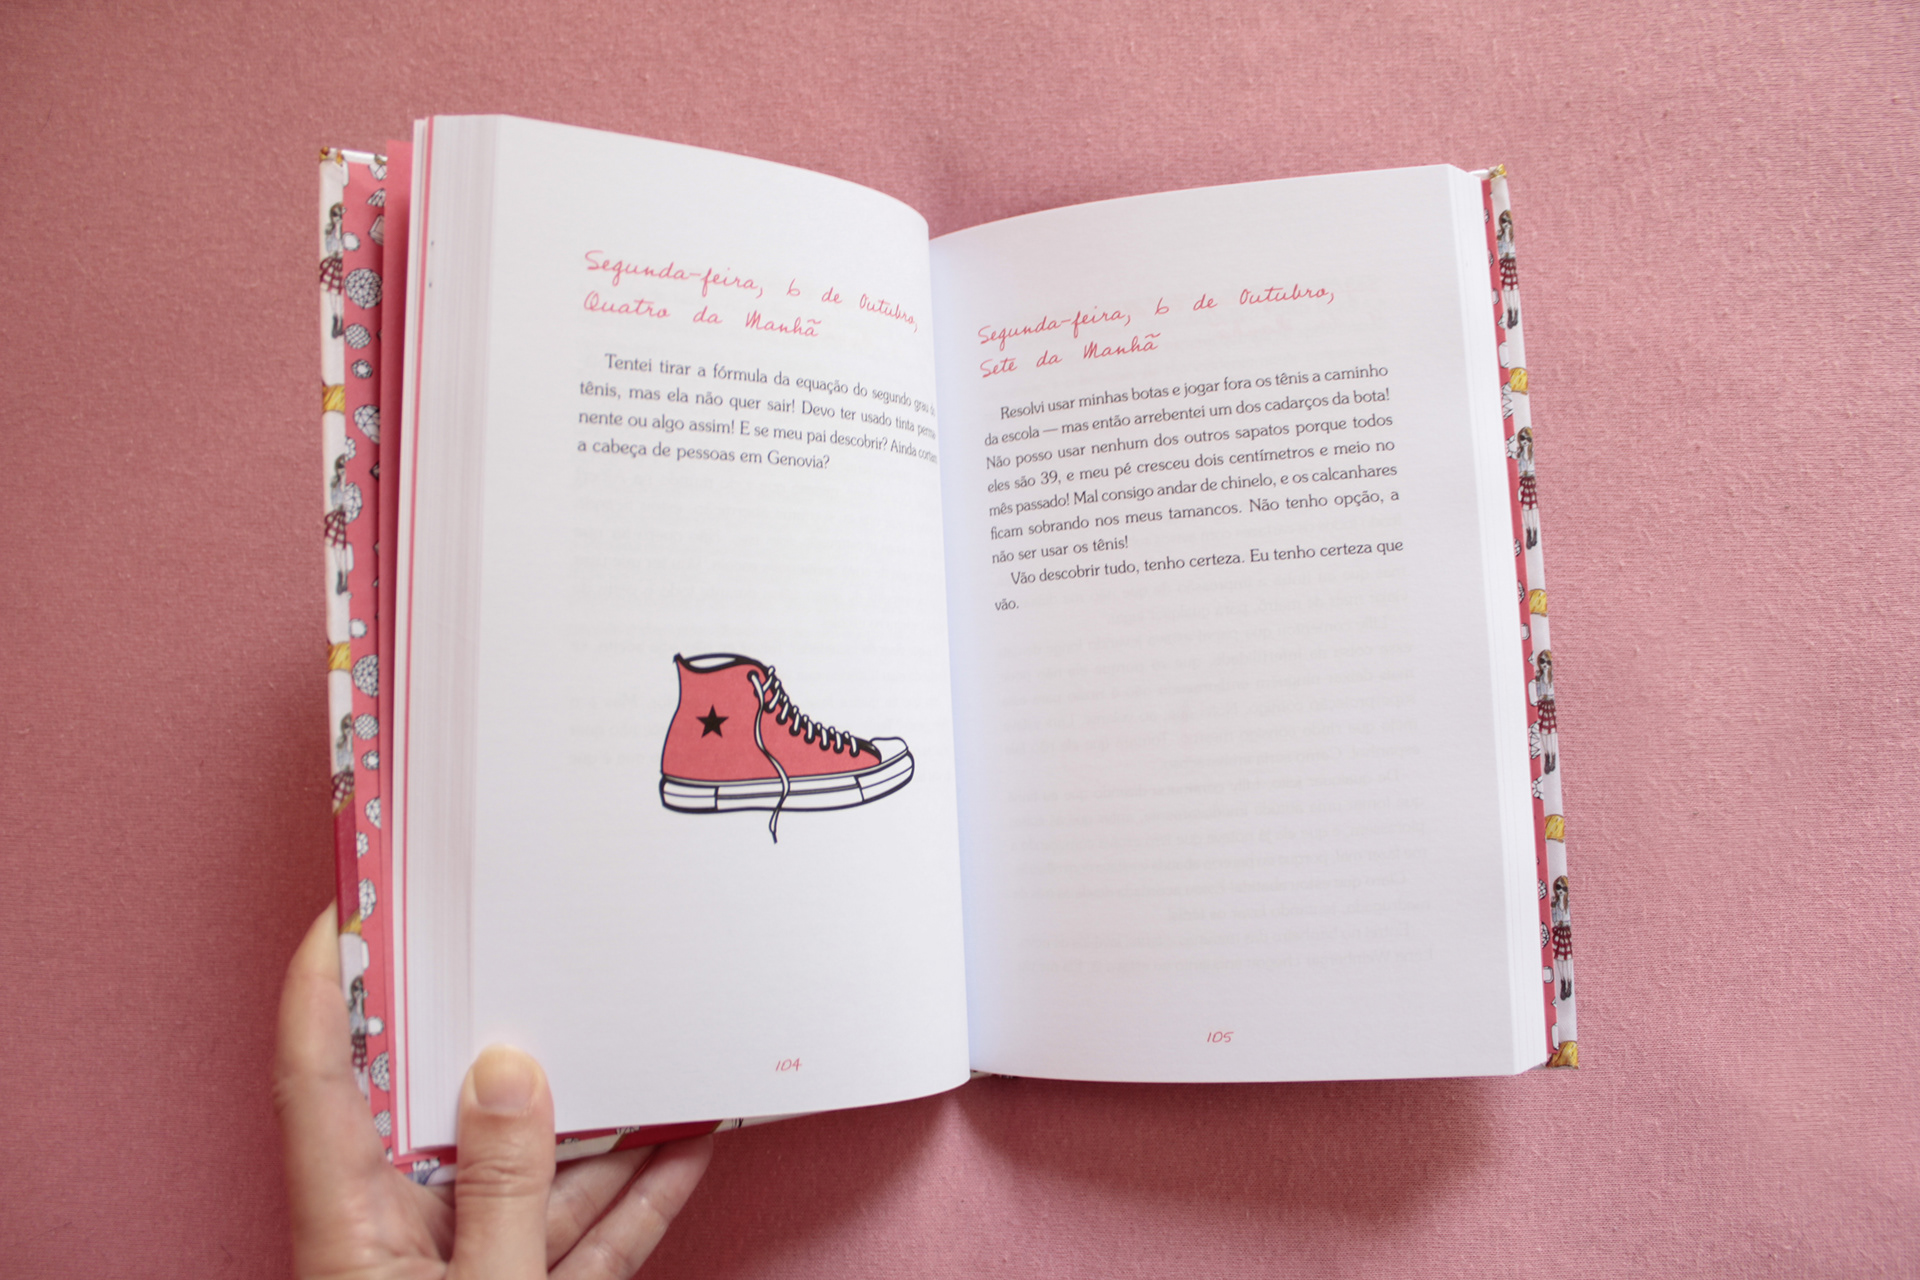 Segunda-feira, 6 de Outubro,
Quatro da Manhã
Tentei tirar a fórmula da equação do segundo grau
tênis, mas ela não quer sair! Devo ter usado tinta perma
nente ou algo assim! E se meu pai descobrir? Ainda cortam
a cabeça de pessoas em Genovia?
104
Segunda-feira, 6 de Outubro,
Sete da Manhã
Resolvi usar minhas botas e jogar fora os tênis a caminho
da escola — mas então arrebentei um dos cadarços da bota!
Não posso usar nenhum dos outros sapatos porque todos
eles são 39, e meu pé cresceu dois centímetros e meio no
mês passado! Mal consigo andar de chinelo, e os calcanhares
ficam sobrando nos meus tamancos. Não tenho opção, a
não ser usar os tênis!
Vão descobrir tudo, tenho certeza. Eu tenho certeza que
vão.
105